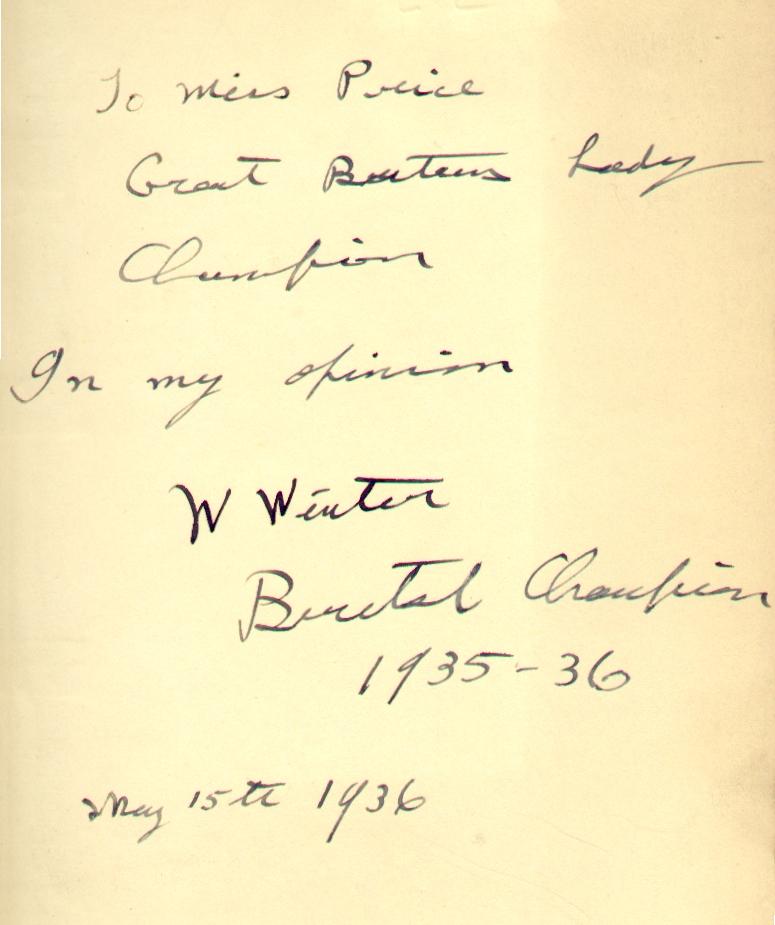 To Miss Price
Great Britains Lady
Champion
In my opinion
W Winter
British Champion
1935-36
May 15th 1936